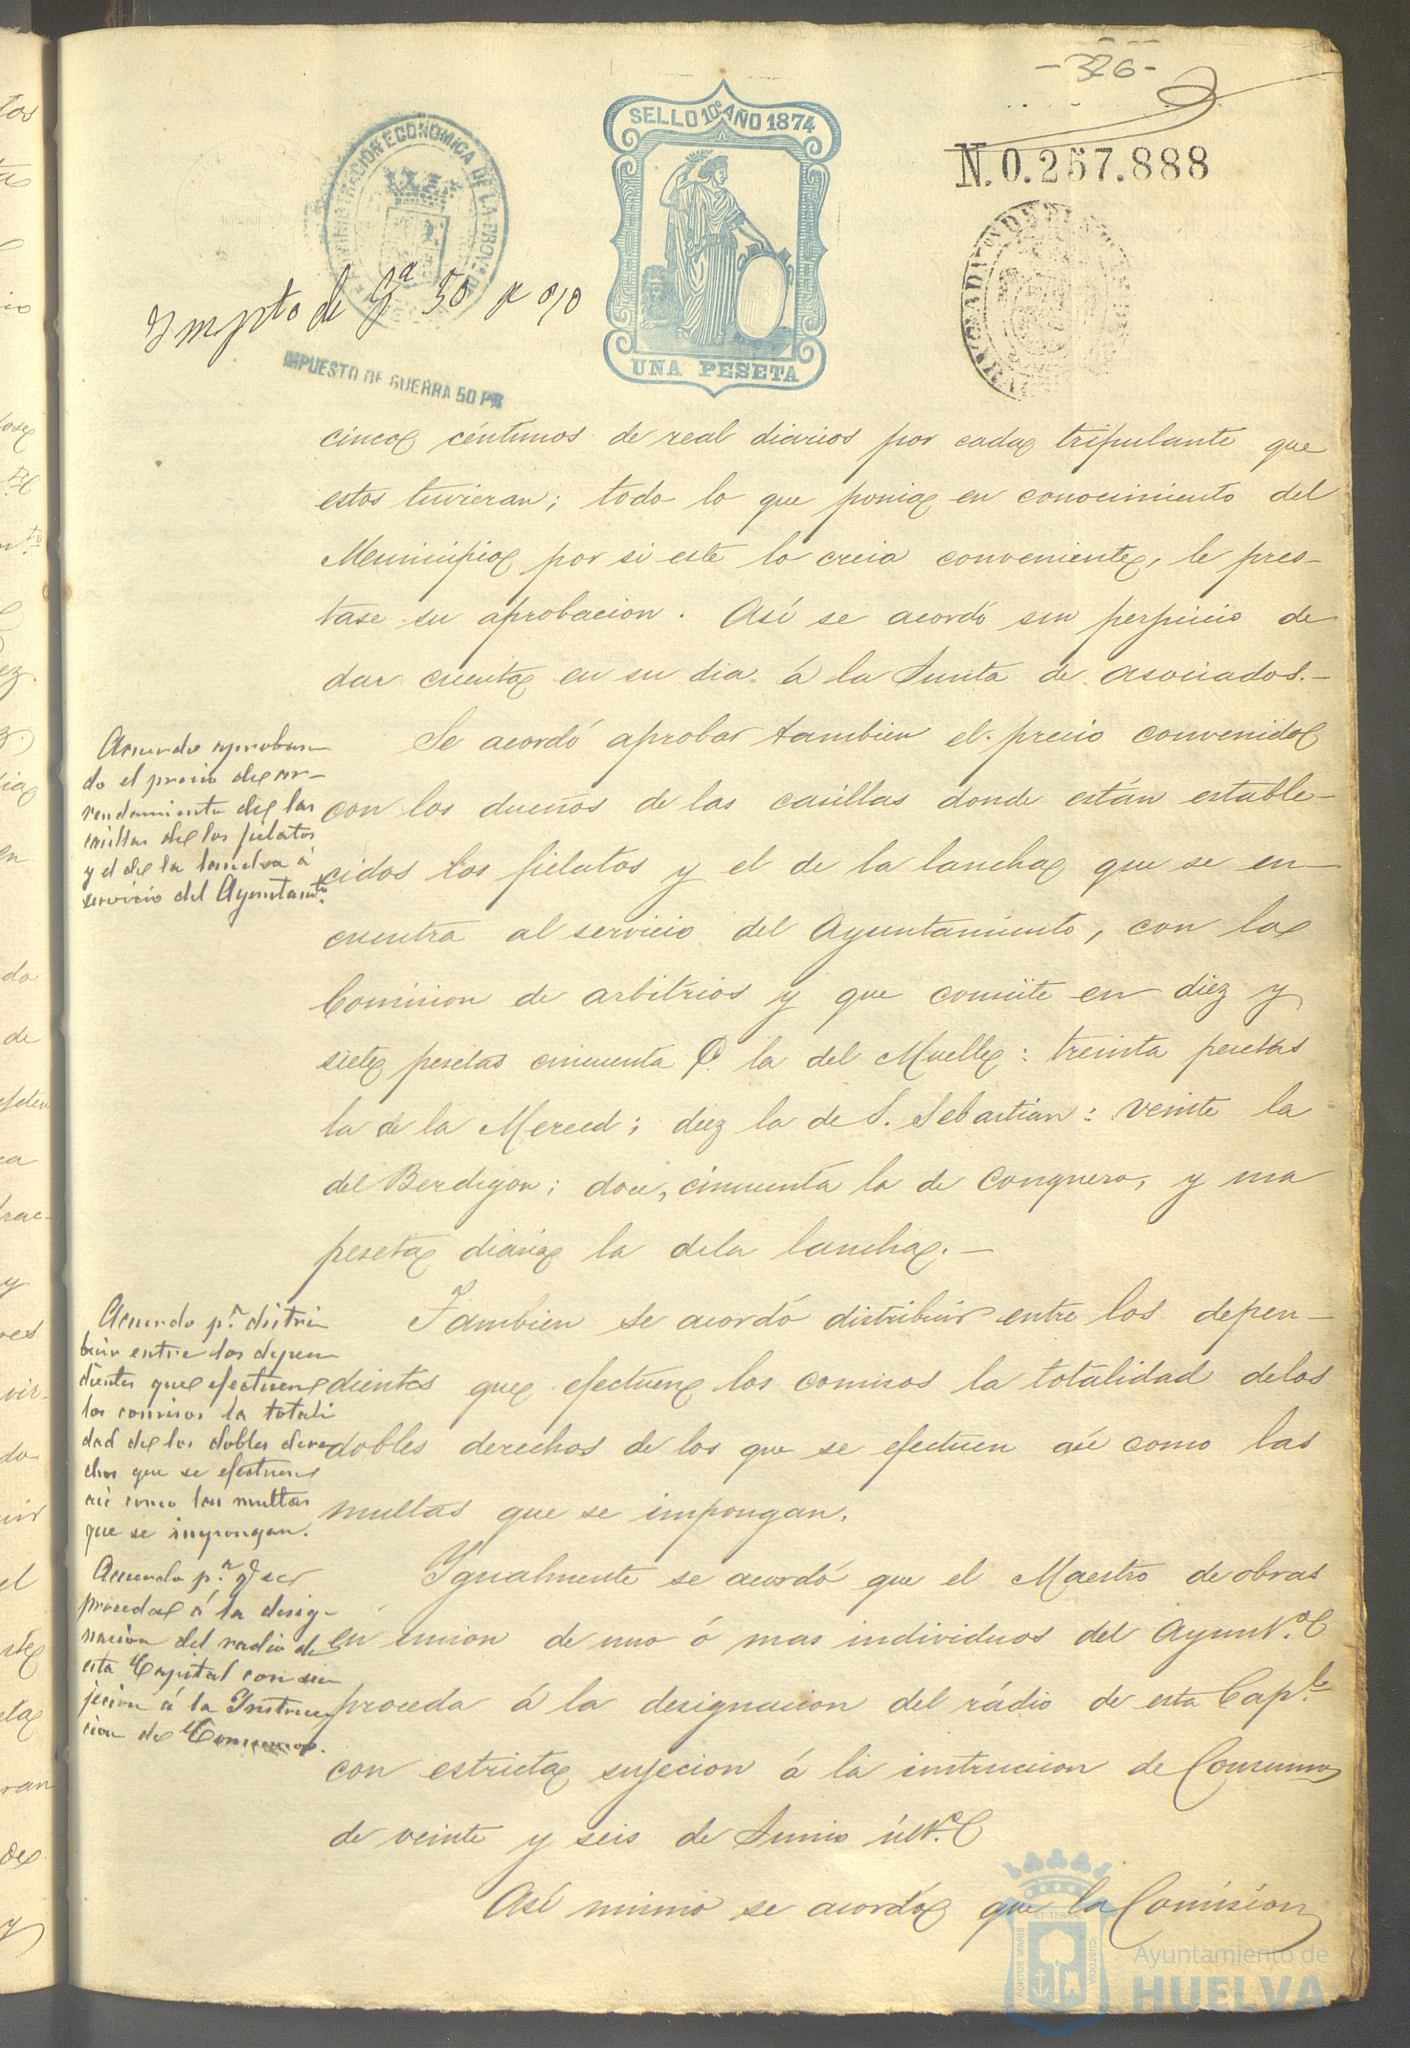 -326-
SELLO 10º AÑO 1874
N. 0.257.888
ADMINISTRACION ECONOMICA DE LA PROVª DE
Impto de Gª 50 p 0/0
IMPUESTO DE GUERRA 50 PR
UNA PESETA
cinco céntimos de real diarios por cada tripulante que
estos tuvieran; todo lo que ponia en conocimiento del
Municipio por si este lo creia conveniente, le pres-
tase su aprobacion. Así se acordó sin perjuicio de
dar cuenta en su dia á la Junta de asociados.-
Acuerdo aproban-
do el precio de ar-
rendamiento de las
casillas de los fielatos
y el de la lancha á
servicio del Ayuntamto.
Se acordó aprobar tambien el precio convenido
con los dueños de las casillas donde están estable-
cidos los fielatos y el de la lancha que se en-
cuentra al servicio del Ayuntamiento, con la
Comision de arbitrios y que consiste en diez y
siete pesetas cincuenta C. la del Muelle: treinta pesetas
la de la Merced; diez la de S. Sebastian: veinte la
del Berdigon; doce, cincuenta la de Conquero, y una
peseta diaria la dela lancha.-
Acuerdo p.ª distri
buir entre los depen
dientes que efectuen
los comisos la totali
dad de los dobles dere
chos que se efectuen
asi como las multas
que se impongan.
Tambien se acordó distribuir entre los depen-
dientes que efectuen los comisos la totalidad delos
dobles derechos de los que se efectuen asi como las
multas que se impongan.
Acuerdo p.ª q se
proceda á la desig-
nacion del radio de
esta Capital con su
jecion á la Instruc
cion de Consumos.
Igualmente se acordó que el Maestro de obras
en union de uno ó mas individuos del Ayunt.º
proceda á la designacion del rádio de esta Cap.l
con estricta sujecion á la instruccion de Consumos
de veinte y seis de Junio últ.º
Así mismo se acordó que la Comision
PORTUS MARIS ET TERRAE CUSTODIA
Ayuntamiento de
HUELVA